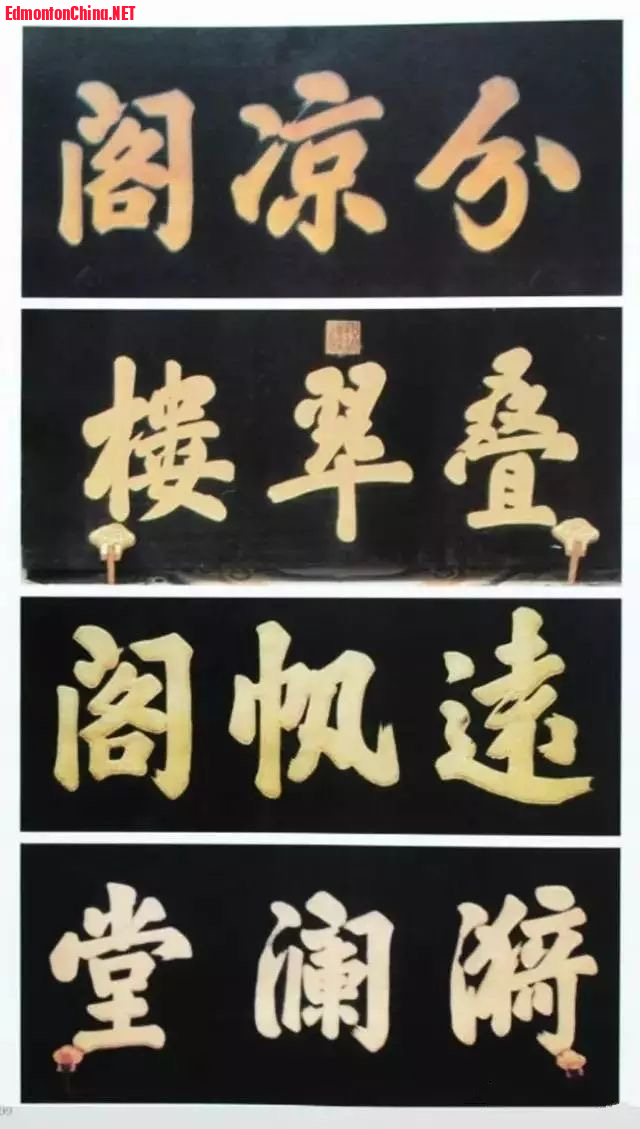 EdmontonChina.NET
分凉阁
叠翠楼
远帆阁
漪澜堂
99